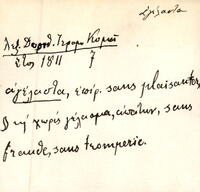 ἀγέλαστα
Λεξ. Δωροθ. Ἱερομ. Κομού
ἔτος 1811 7
ἀγέλαστα, ἐπίρ. sans plaisanter,
ἤ χωρίς γέλασμα, ἀπάτην, sans
fraude, sans tromperie.